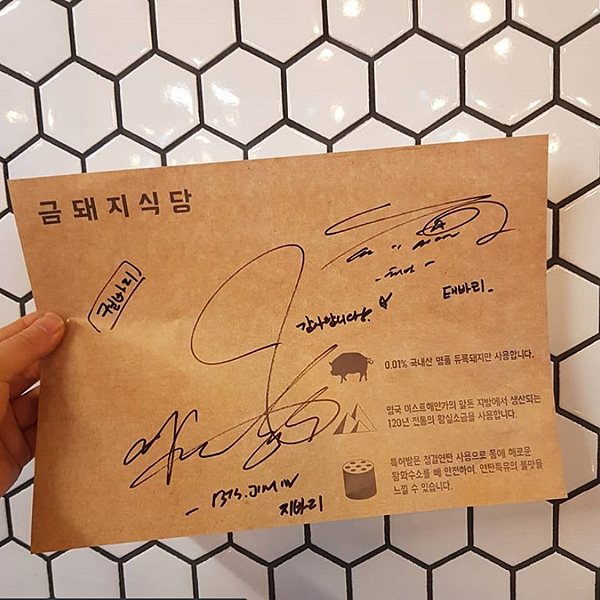 금돼지식당
퀄바리
감사합니다.
태바리.
0.01% 국내산 명품 듀록돼지만 사용합니다.
영국 이스트해안가의 말돈 지방에서 생산되는
120년 전통의 황실소금을 사용합니다.
특허받은 청결연탄 사용으로 몸에 해로운
황화수소를 빼 안전하며, 연탄특유의 불맛을
느낄 수 있습니다.
- BTS. JIMIN
지바리